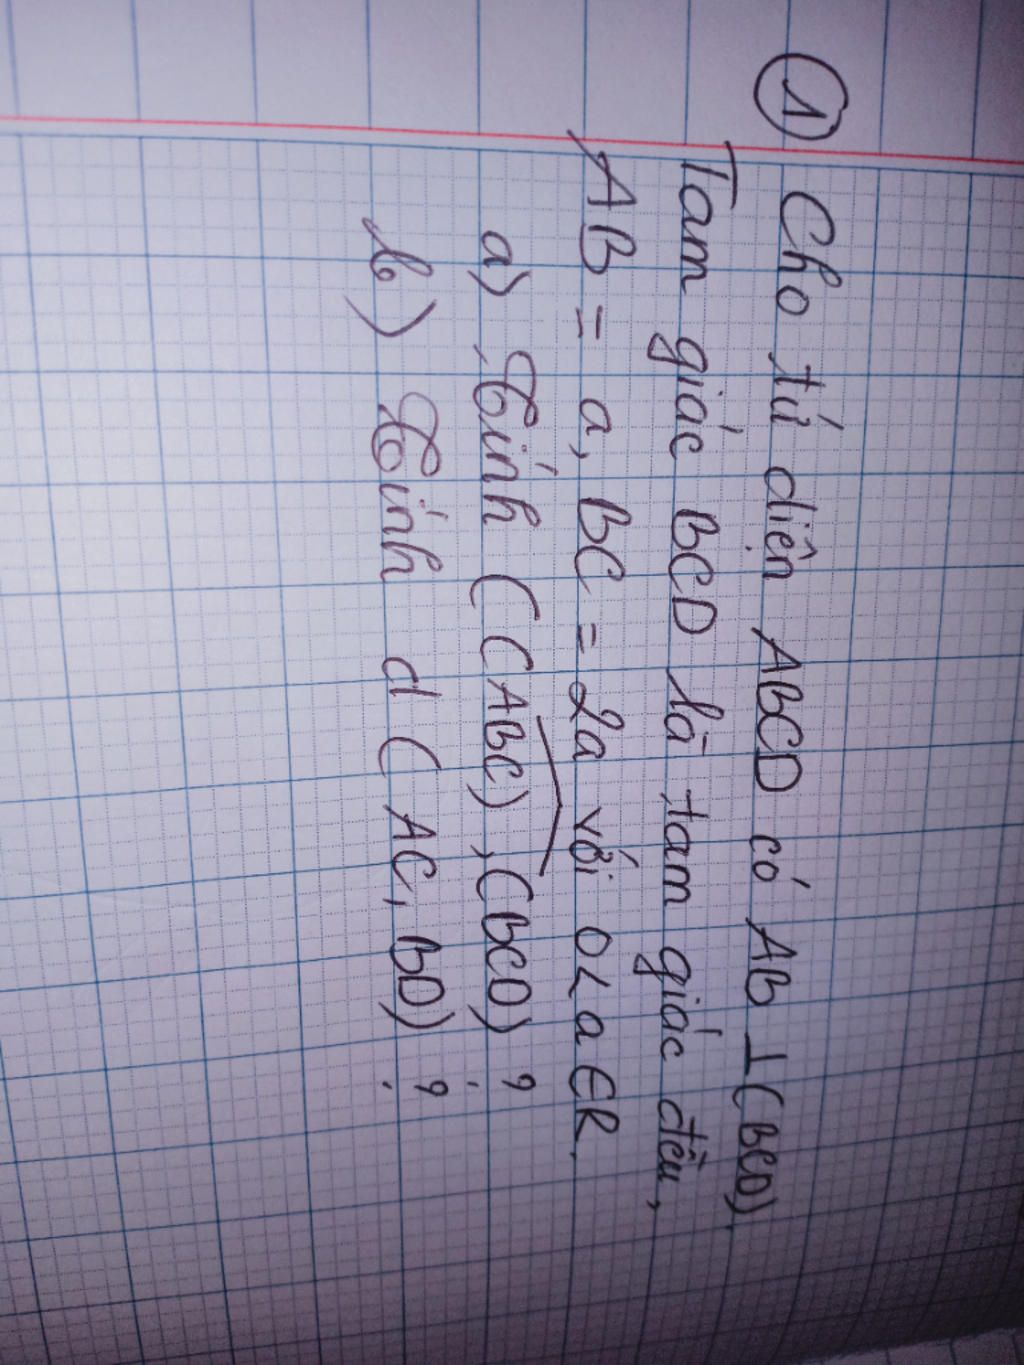 ① Cho tứ diện ABCD có AB ⊥ (BCD).
Tam giác BCD là tam giác đều,
AB = a, BC = 2a với 0 < a ∈ R.
a) Tính ((ABC), (BCD)) ?
b) Tính d (AC, BD) ?